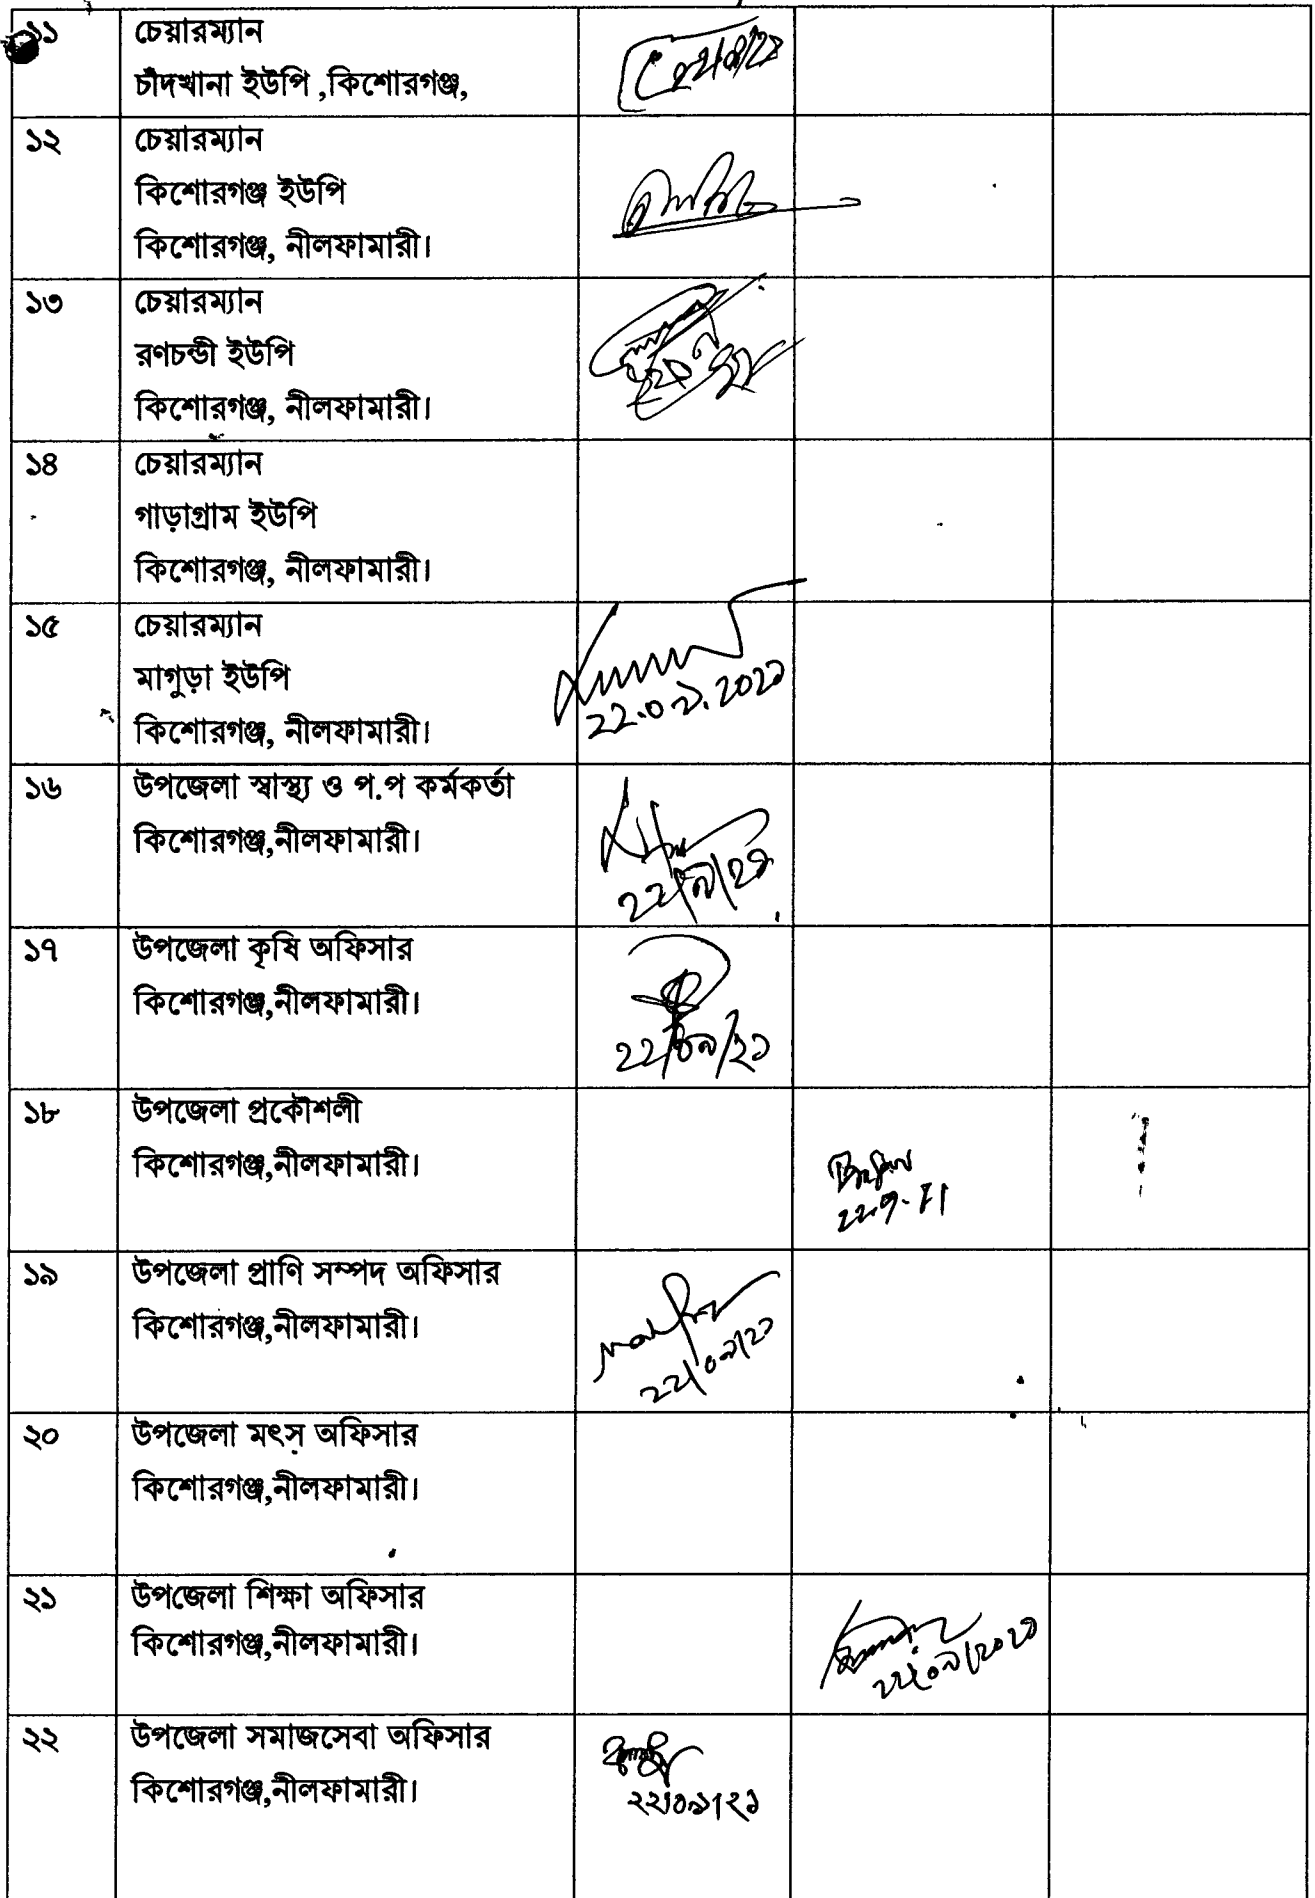 ১১
চেয়ারম্যান
চাঁদখানা ইউপি ,কিশোরগঞ্জ,
১২
চেয়ারম্যান
কিশোরগঞ্জ ইউপি
কিশোরগঞ্জ, নীলফামারী।
১৩
চেয়ারম্যান
রণচন্ডী ইউপি
কিশোরগঞ্জ, নীলফামারী।
১৪
চেয়ারম্যান
গাড়াগ্রাম ইউপি
কিশোরগঞ্জ, নীলফামারী।
১৫
চেয়ারম্যান
মাগুড়া ইউপি
কিশোরগঞ্জ, নীলফামারী।
22.০৯.202১
১৬
উপজেলা স্বাস্থ্য ও প.প কর্মকর্তা
কিশোরগঞ্জ,নীলফামারী।
১৭
উপজেলা কৃষি অফিসার
কিশোরগঞ্জ,নীলফামারী।
22/০৯/২১
১৮
উপজেলা প্রকৌশলী
কিশোরগঞ্জ,নীলফামারী।
১৯
উপজেলা প্রাণি সম্পদ অফিসার
কিশোরগঞ্জ,নীলফামারী।
22/০৯/২১
২০
উপজেলা মৎস অফিসার
কিশোরগঞ্জ,নীলফামারী।
২১
উপজেলা শিক্ষা অফিসার
কিশোরগঞ্জ,নীলফামারী।
22/০৯/2০2১
২২
উপজেলা সমাজসেবা অফিসার
কিশোরগঞ্জ,নীলফামারী।
২২/০৯/২১